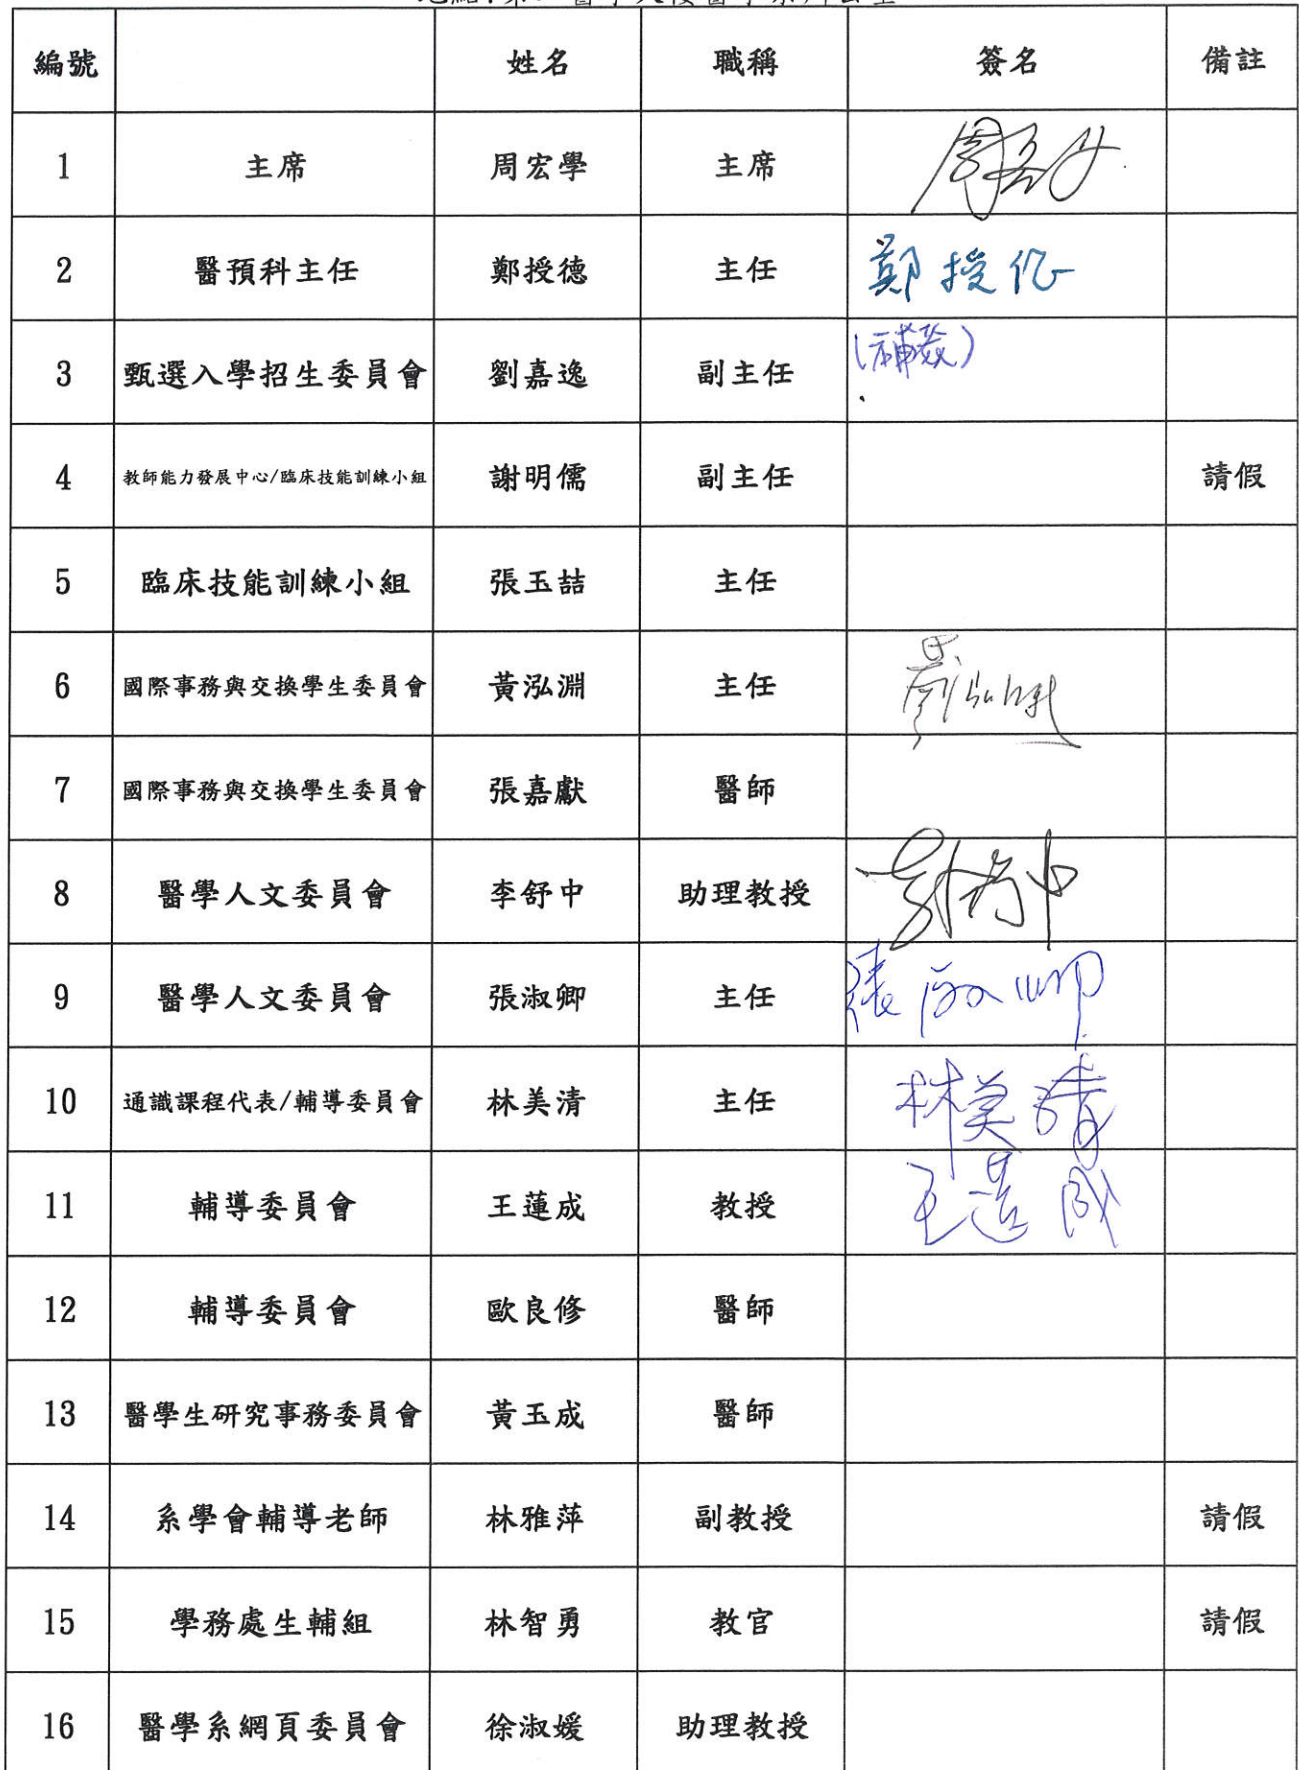 編號 姓名 職稱 簽名 備註
1 主席 周宏學 主席
2 醫預科主任 鄭授德 主任 鄭授德
3 甄選入學招生委員會 劉嘉逸 副主任 (補簽)
4 教師能力發展中心/臨床技能訓練小組 謝明儒 副主任 請假
5 臨床技能訓練小組 張玉喆 主任
6 國際事務與交換學生委員會 黃泓淵 主任
7 國際事務與交換學生委員會 張嘉獻 醫師
8 醫學人文委員會 李舒中 助理教授
9 醫學人文委員會 張淑卿 主任 張淑卿
10 通識課程代表/輔導委員會 林美清 主任 林美清
11 輔導委員會 王蓮成 教授 王蓮成
12 輔導委員會 歐良修 醫師
13 醫學生研究事務委員會 黃玉成 醫師
14 系學會輔導老師 林雅萍 副教授 請假
15 學務處生輔組 林智勇 教官 請假
16 醫學系網頁委員會 徐淑媛 助理教授